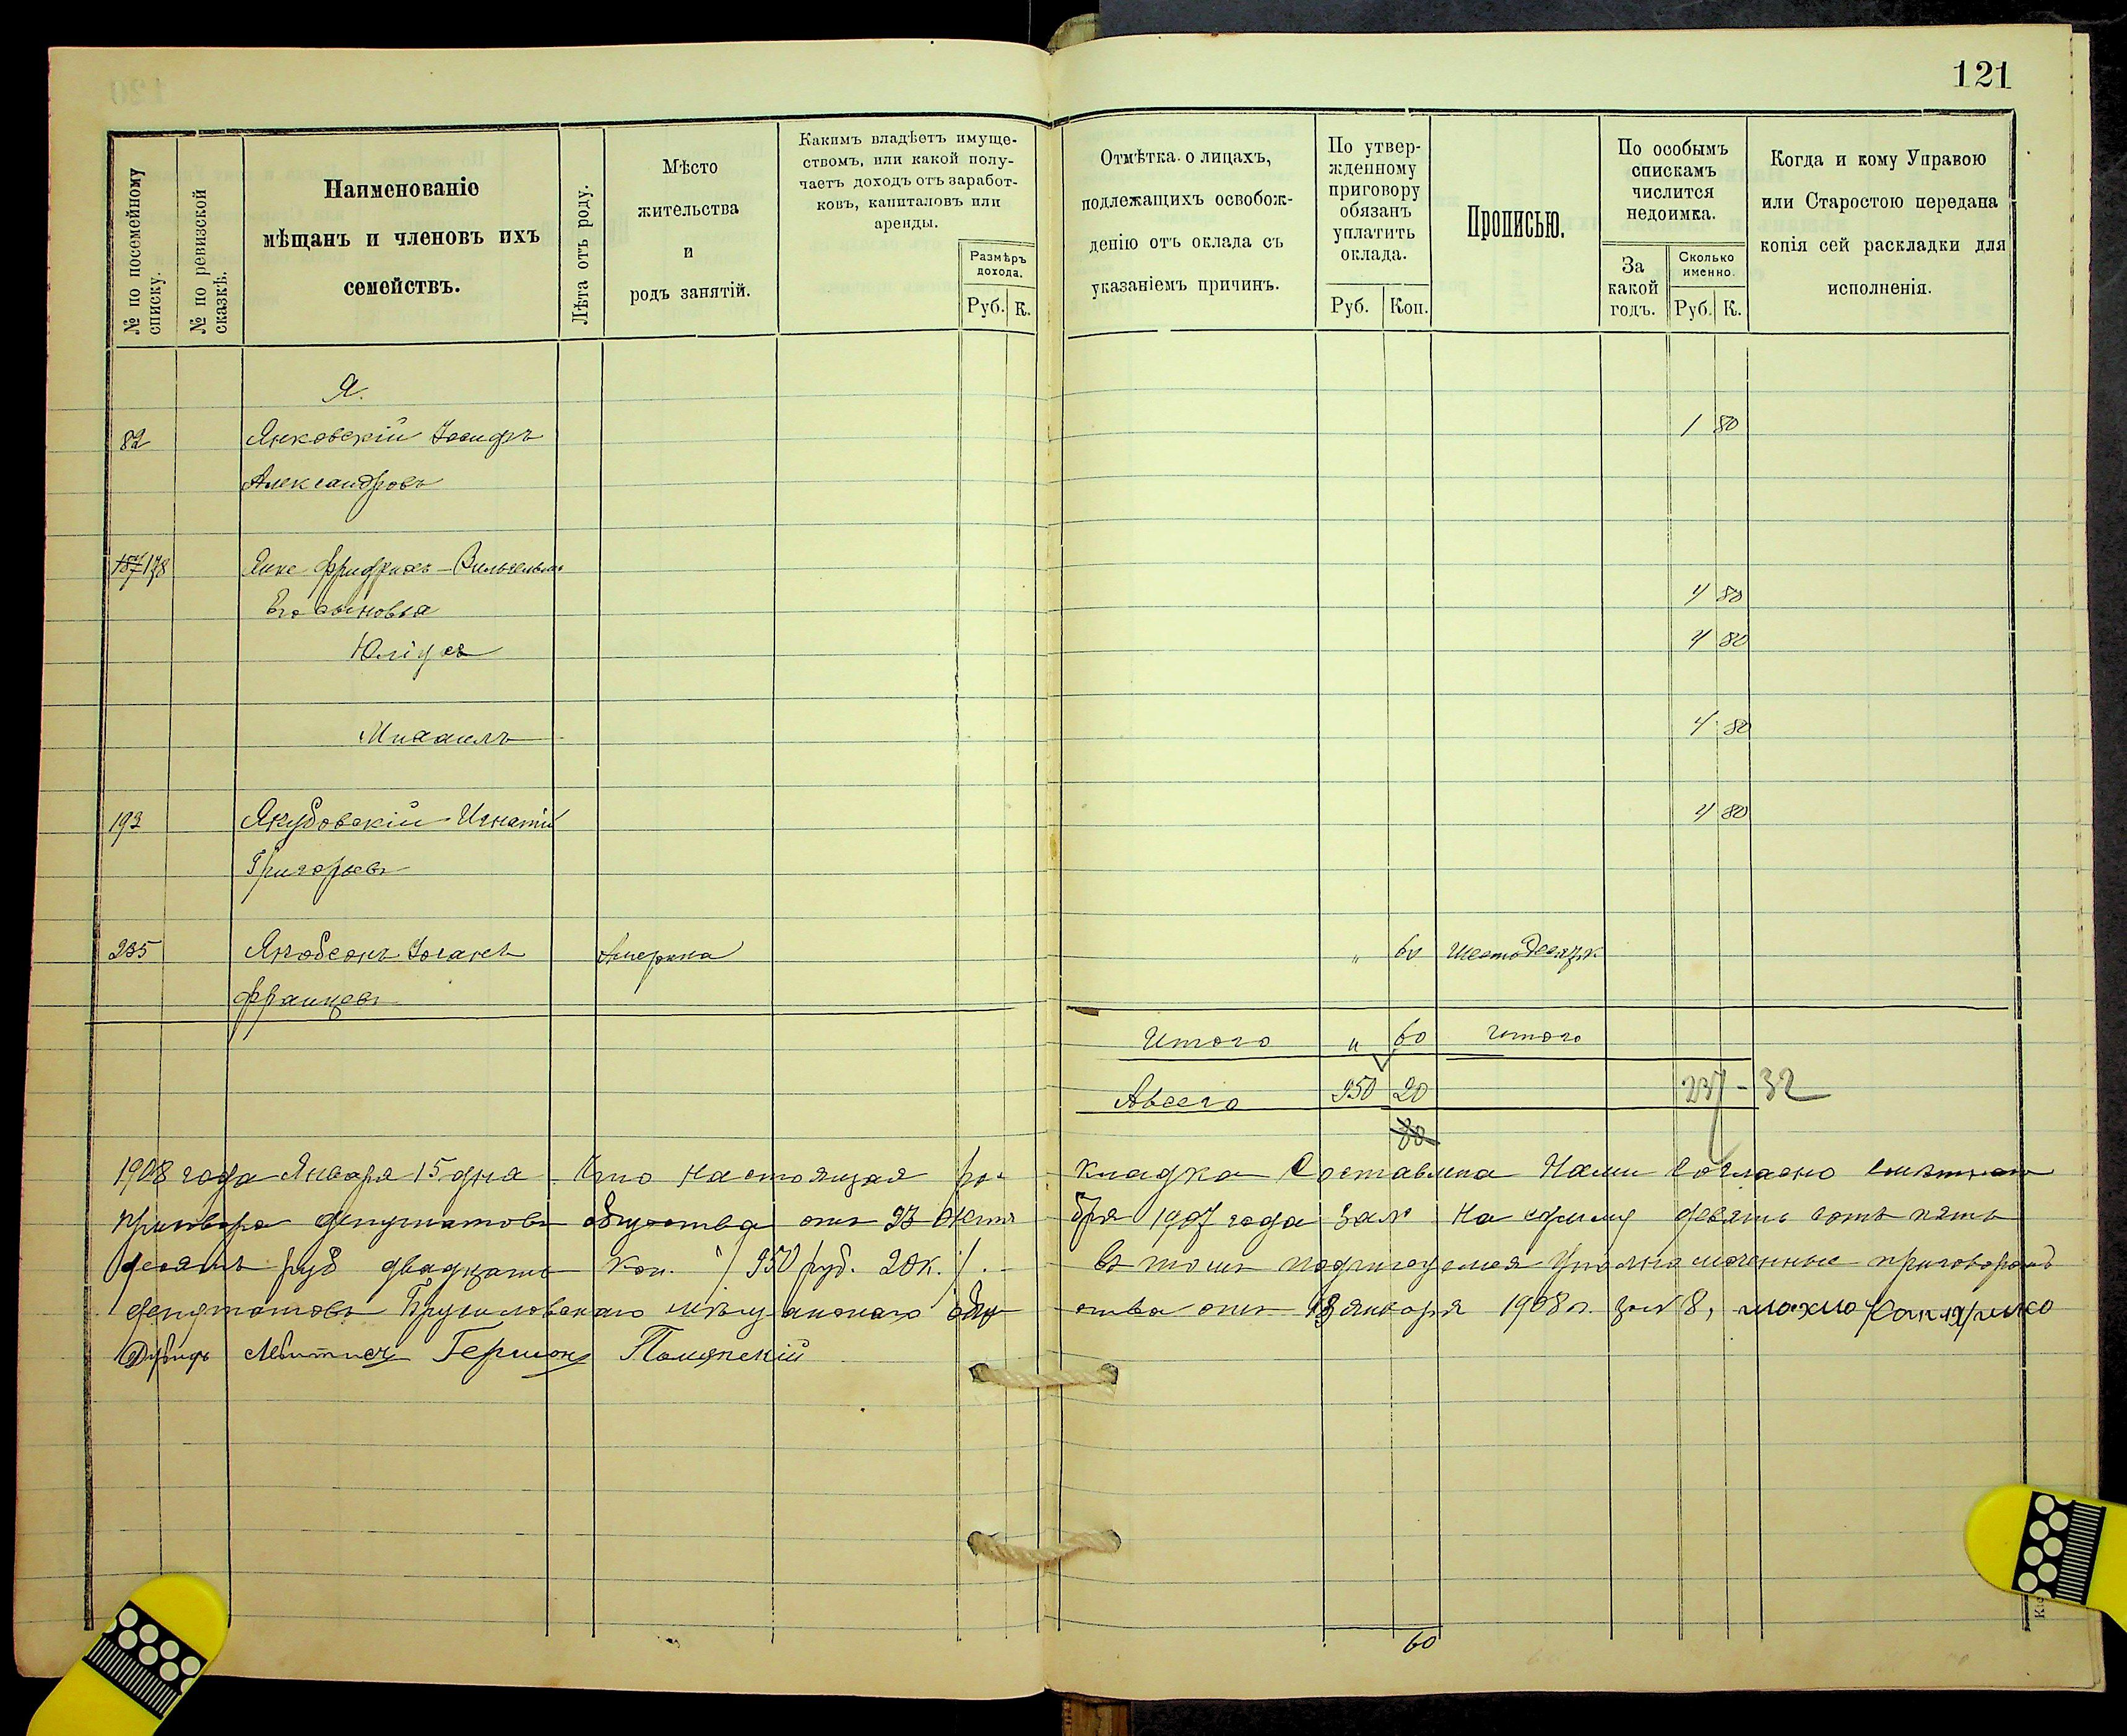 121
№ по посемейному списку.
№ по ревизской сказкѣ.
Наименованіе
мѣщанъ и членовъ ихъ
семействъ.
Лѣта отъ роду.
Мѣсто
жительства
и
родъ занятій.
Какимъ владѣетъ имуще-
ствомъ, или какой полу-
чаетъ доходъ отъ заработ-
ковъ, капиталовъ или
аренды.
Размѣръ
дохода.
Руб. К.
Отмѣтка о лицахъ,
подлежащихъ освобож-
денію отъ оклада съ
указаніемъ причинъ.
По утвер-
жденному
приговору
обязанъ
уплатить
оклада.
Руб. Коп.
Прописью.
По особымъ
спискамъ
числится
недоимка.
За
какой
годъ.
Сколько
именно.
Руб. К.
Когда и кому Управою
или Старостою передана
копія сей раскладки для
исполненія.
Я.
82 Янковскій Іосифъ 1 80
Александровъ
187 178 Янке Фридрихъ-Вильгельмъ
Его сыновья 4 80
Юліусъ 4 80
Михаилъ 4 80
192 Якубовскій Игнатій 4 80
Григорьевъ
235 Якобсонъ Іоганъ Америка " 60 шестьдесят к
Францевъ
Итого " 60 Итого
А всего 950 20 237-32
80
1908 года Января 15 дня. Что настоящая ра- кладка составлена Нами согласно
приговора депутатовъ общества отъ 23 Октя бря 1907 года за № на сумму девять сотъ пять
десятъ руб двадцать коп. / 950 руб. 20 к. /. въ томъ подписуемся уполномоченные приговоромъ
депутатовъ Брусиловскаго мѣщанскаго обще ства отъ 13 января 1908 г. за № 8,
60